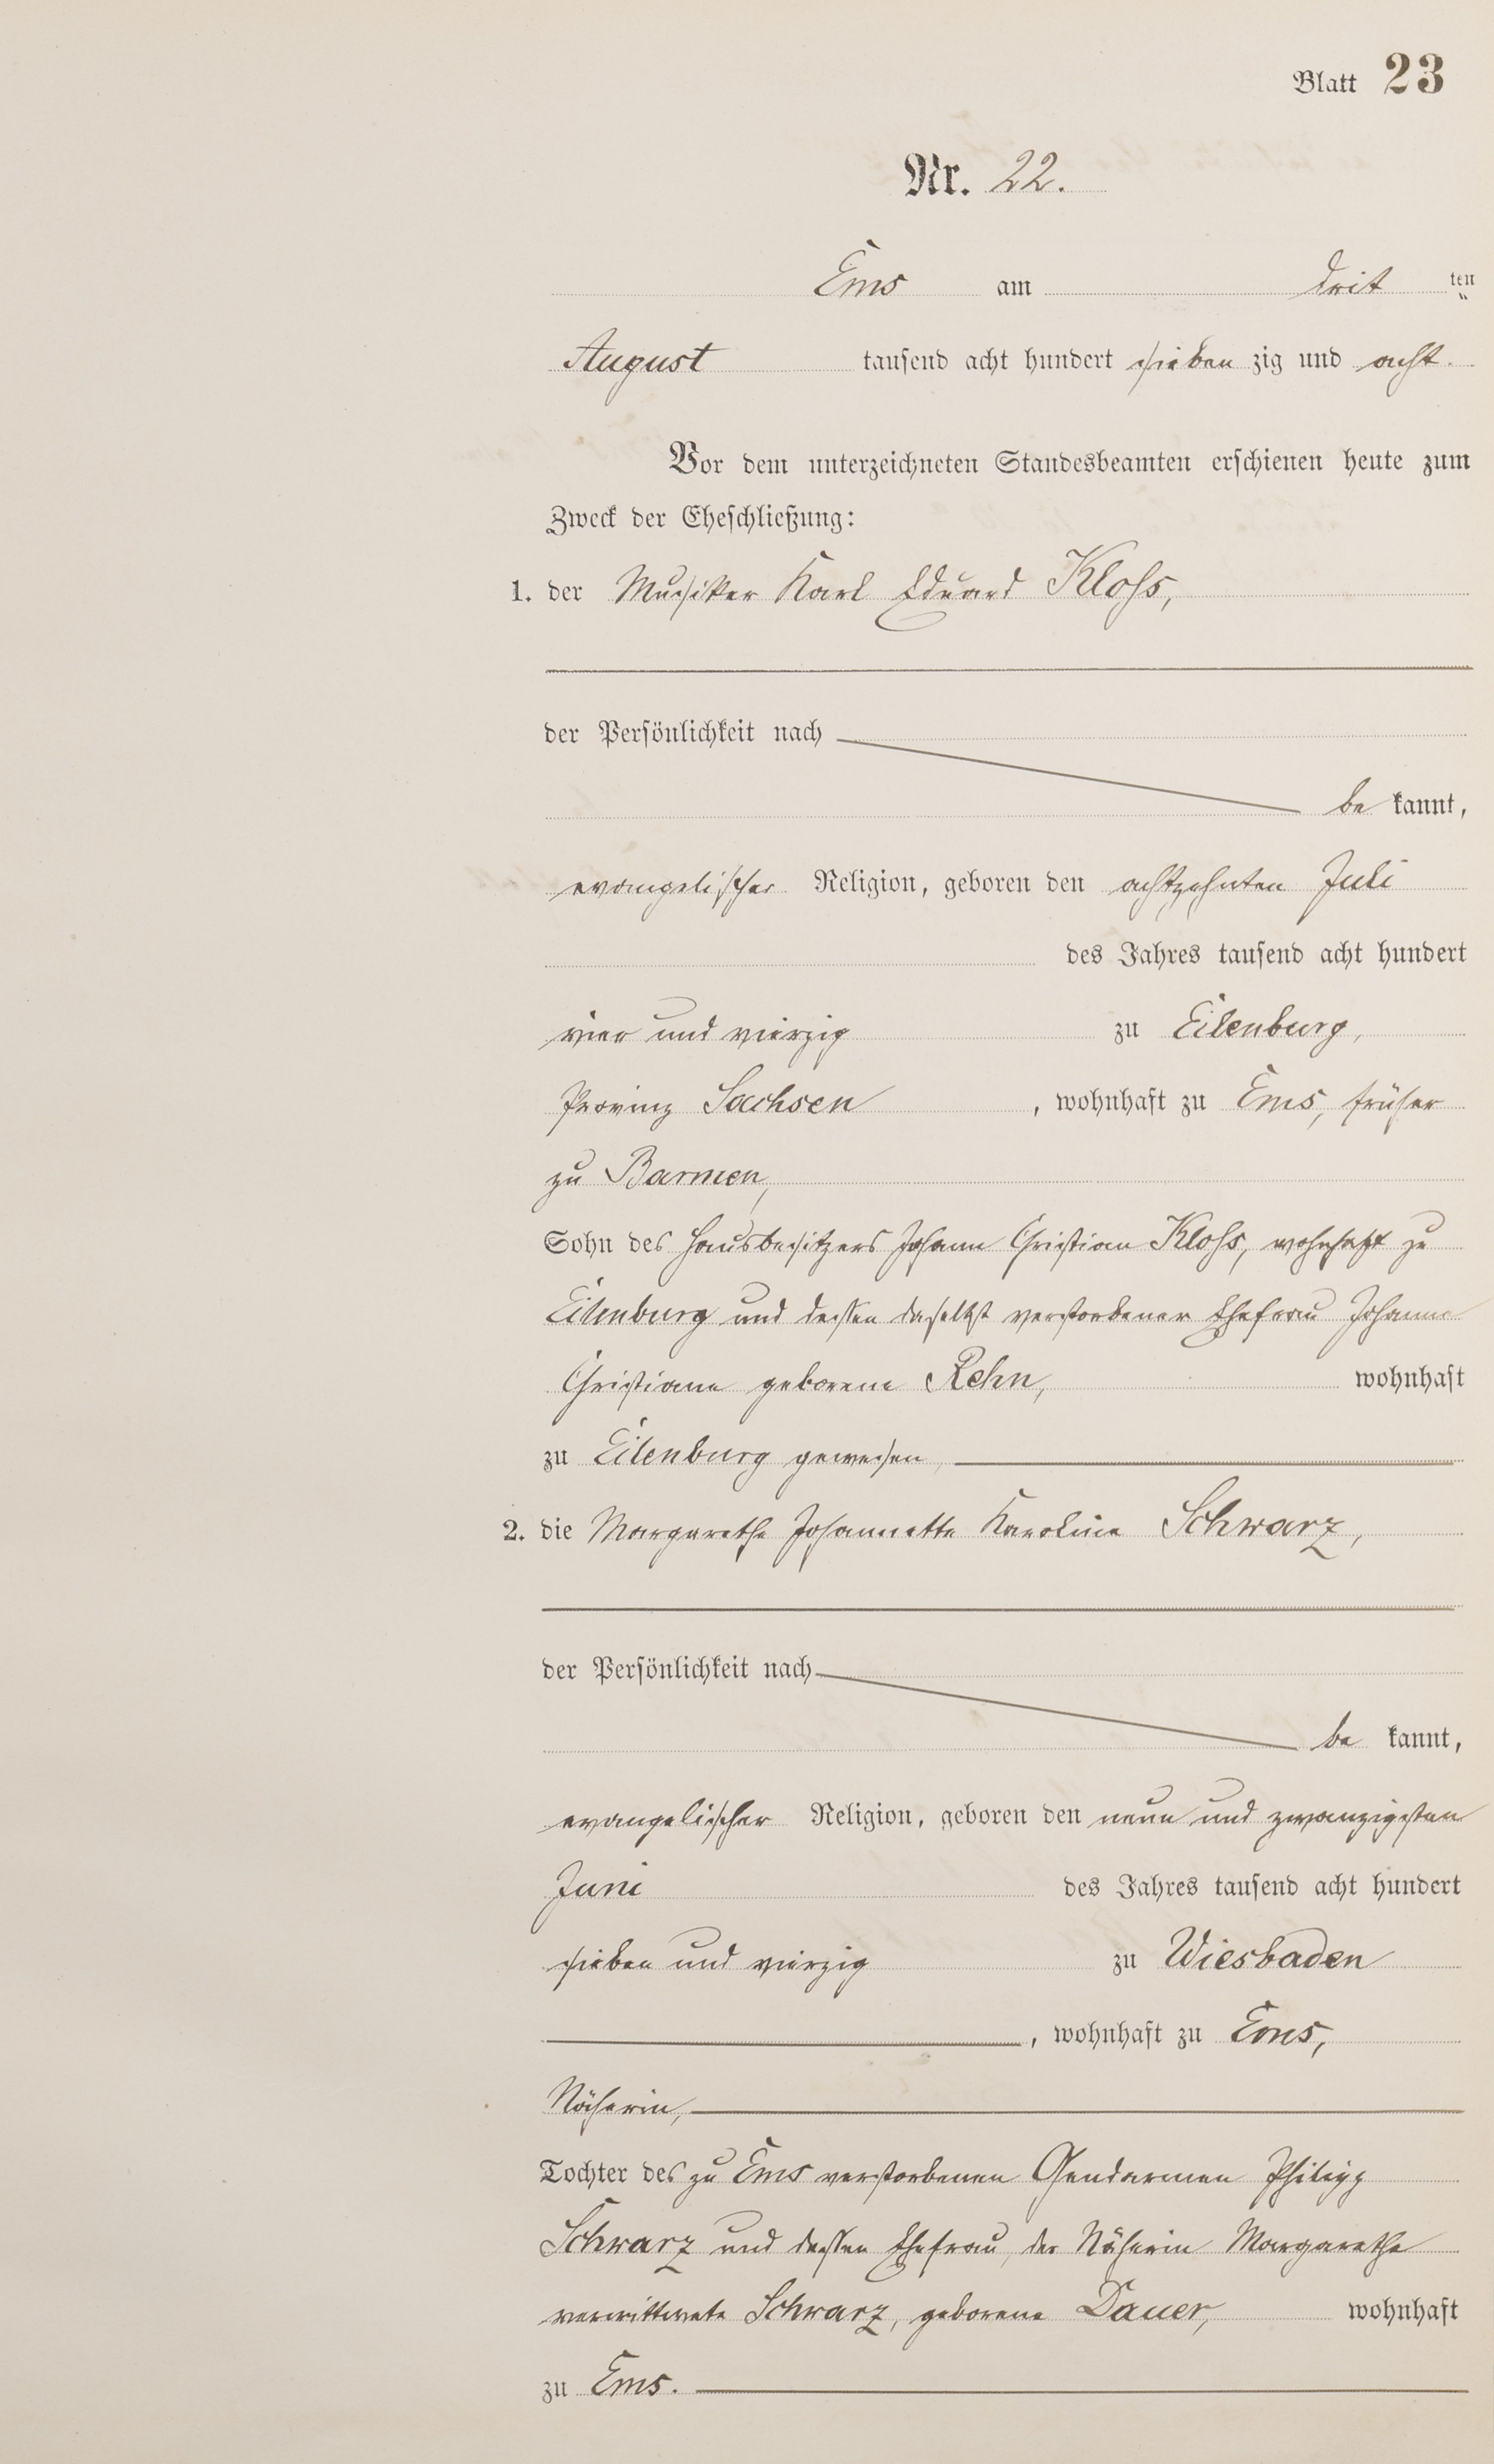 Blatt 23
Nr. 22.
Ems am drit ten
August tausend acht hundert sieben zig und acht.
Vor dem unterzeichneten Standesbeamten erschienen heute zum
Zweck der Eheschließung:
1. der Musiker Karl Eduard Kloß,
der Persönlichkeit nach
be kannt,
evangelischer Religion, geboren den achtzehnten Juli
des Jahres tausend acht hundert
vier und vierzig zu Eilenburg,
Provinz Sachsen, wohnhaft zu Ems, früher
zu Barmen,
Sohn des Hausbesitzers Johann Christian Kloß, wohnhaft zu
Eilenburg und dessen daselbst verstorbener Ehefrau Johanne
Christiane geborene Rehn, wohnhaft
zu Eilenburg gewesen,
2. die Margarethe Johannette Karoline Schwarz,
der Persönlichkeit nach
be kannt,
evangelischer Religion, geboren den neun und zwanzigsten
Juni des Jahres tausend acht hundert
sieben und vierzig zu Wiesbaden
, wohnhaft zu Ems,
Näherin,
Tochter des zu Ems verstorbenen Gendarmen Philipp
Schwarz und dessen Ehefrau, der Näherin Margarethe
verwittwete Schwarz, geborene Dauer, wohnhaft
zu Ems.